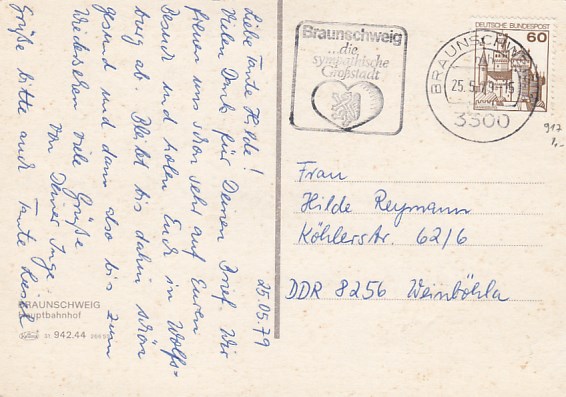 25.05.79
Liebe Tante Hilde!
Vielen Dank für Deinen Brief. Wir
freuen uns schon sehr auf Euren
Besuch und holen Euch in Wolfs=
burg ab. Bleibt bis dahin schön
gesund und dann also bis zum
Wiedersehen viele Grüße
von Deiner Inge.
Grüße bitte auch Tante
BRAUNSCHWEIG
Hauptbahnhof
51 942.44
Braunschweig
die
...sympathische
Großstadt
BRAUNSCHWEIG
25.5.79-15
3300
DEUTSCHE BUNDESPOST
60
917
1,-
Frau
Hilde Reymann
Köhlerstr. 62/6
DDR 8256 Weinböhla